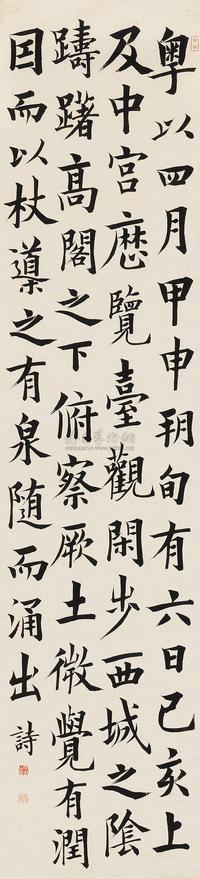 粤以四月甲申朔旬有六日己亥上
及中宫歷覽臺觀閑步西城之陰
躊躇高閣之下俯察厥土微覺有潤
因而以杖導之有泉隨而涌出 詩